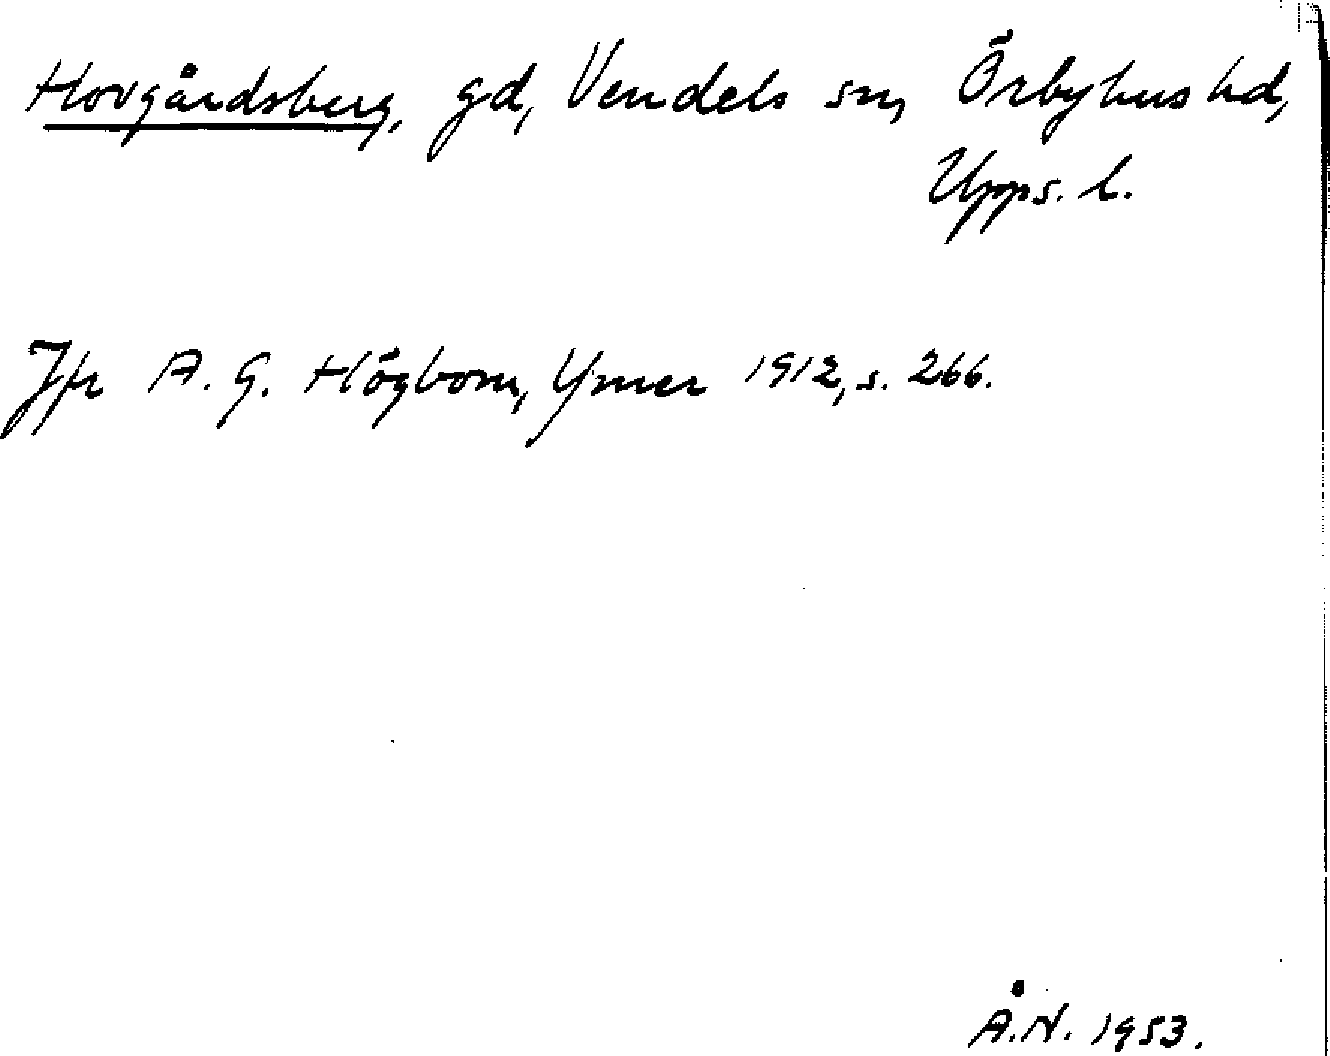 Hovgårdsberg, gd, Vendels sn, Örbyhus hd,
Upps. l.
Jfr A. G. Högbom, Ymer 1912, s. 266.
Å.N. 1953.